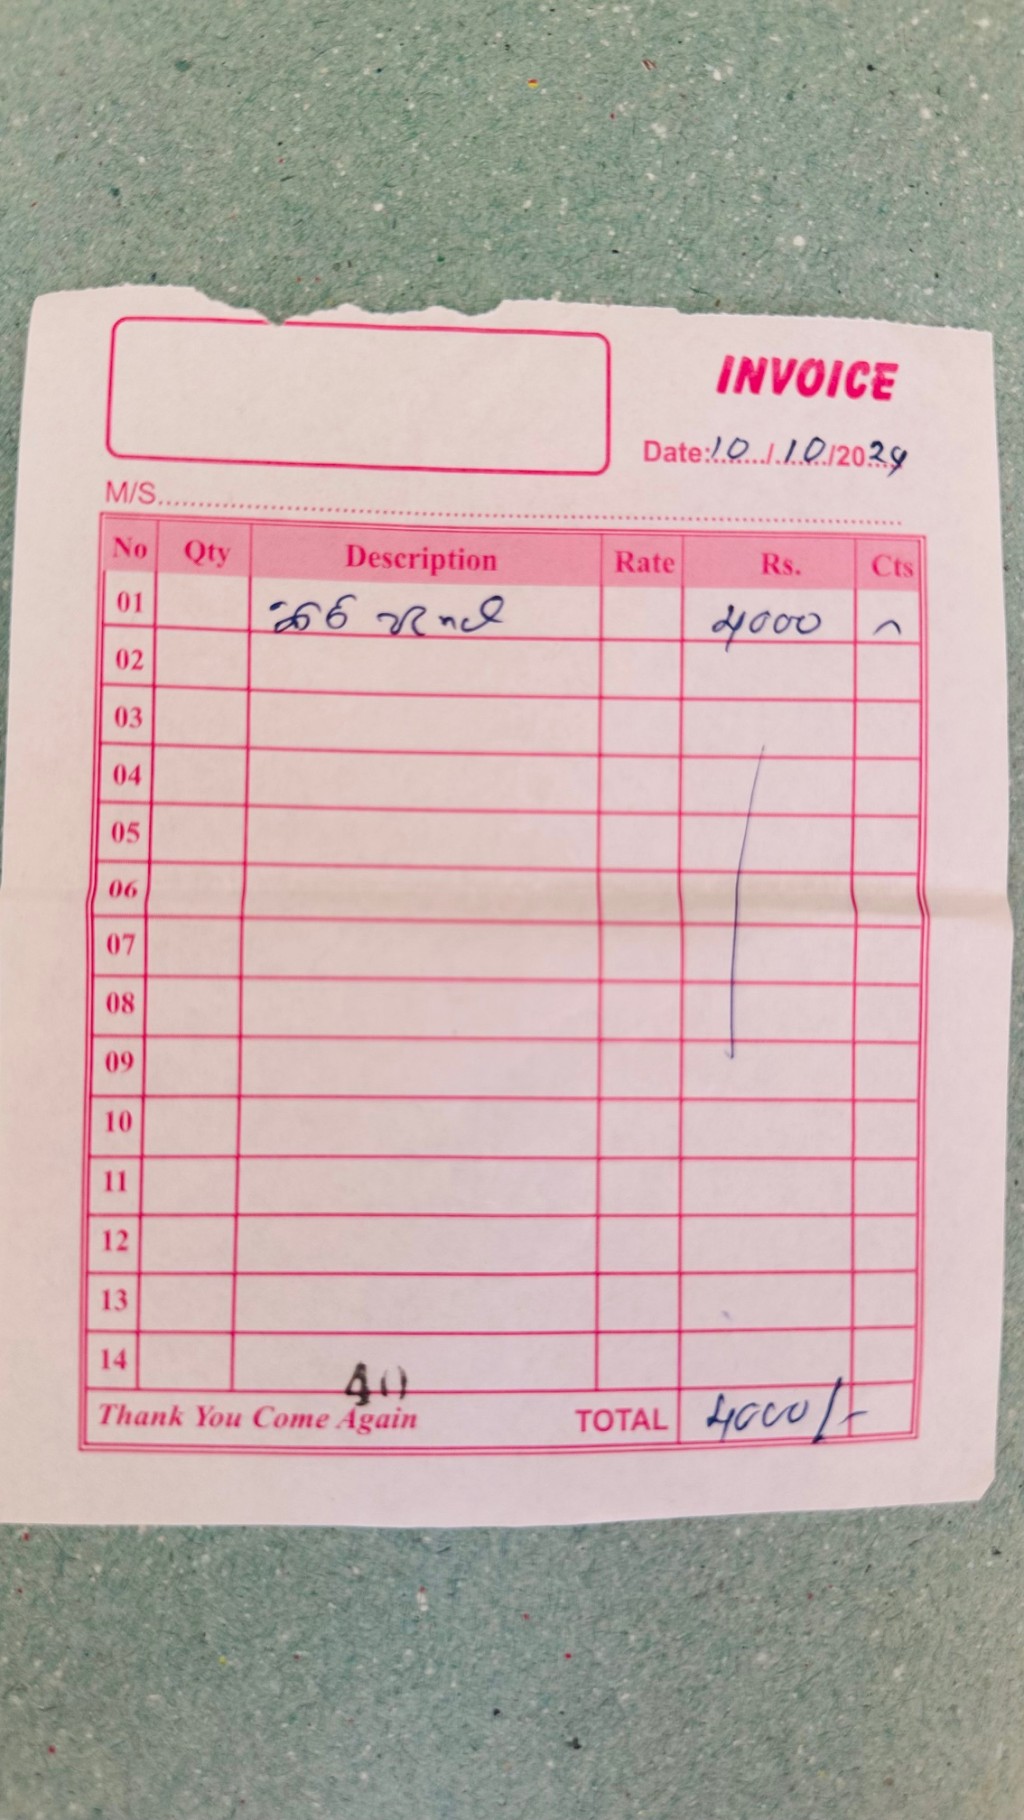 INVOICE
Date: 10 / 10 /2024
M/S
No Qty Description Rate Rs. Cts
01 4000
02
03
04
05
06
07
08
09
10
11
12
13
14
40
Thank You Come Again TOTAL 4000/-